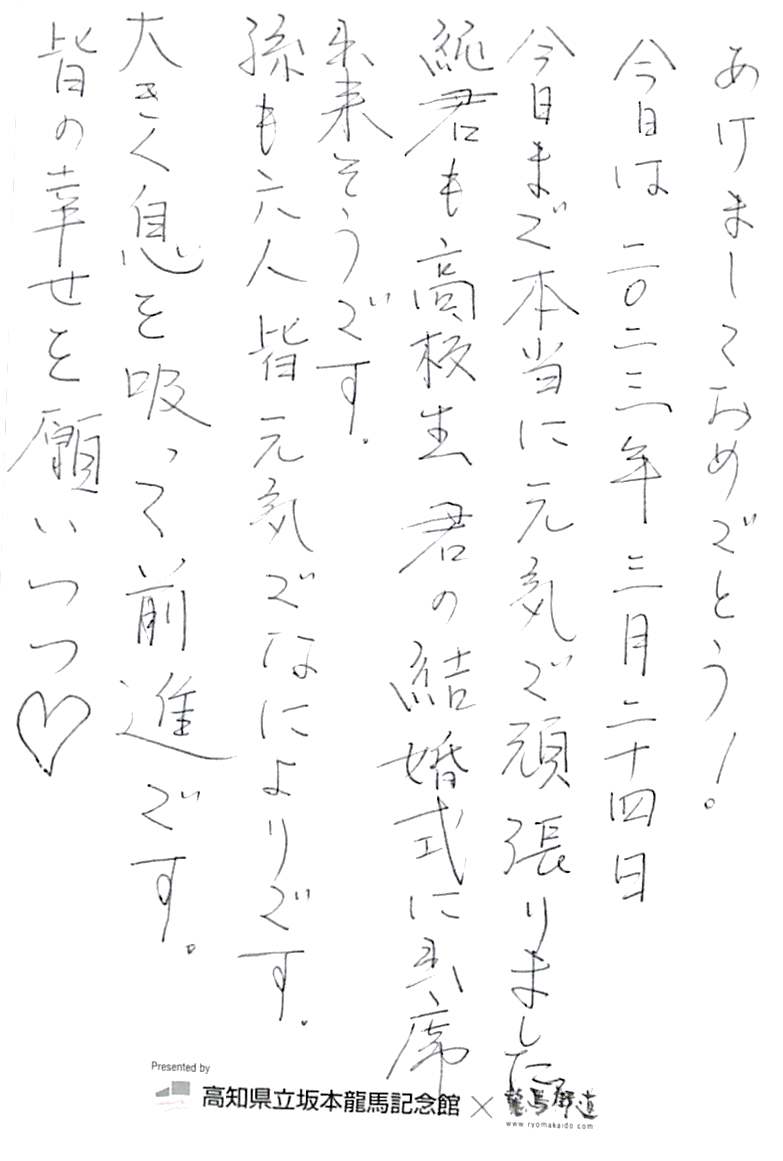 あけましておめでとう!
今日は二〇二三年三月二十四日
今日まで本当に元気で頑張りました
統君も高校生 君の結婚式に出席
出来そうです。
孫も六人皆元気でなによりです。
大きく息を吸って前進です。
皆の幸せを願いつつ♡
Presented by
高知県立坂本龍馬記念館×龍馬街道
www.ryomakaido.com